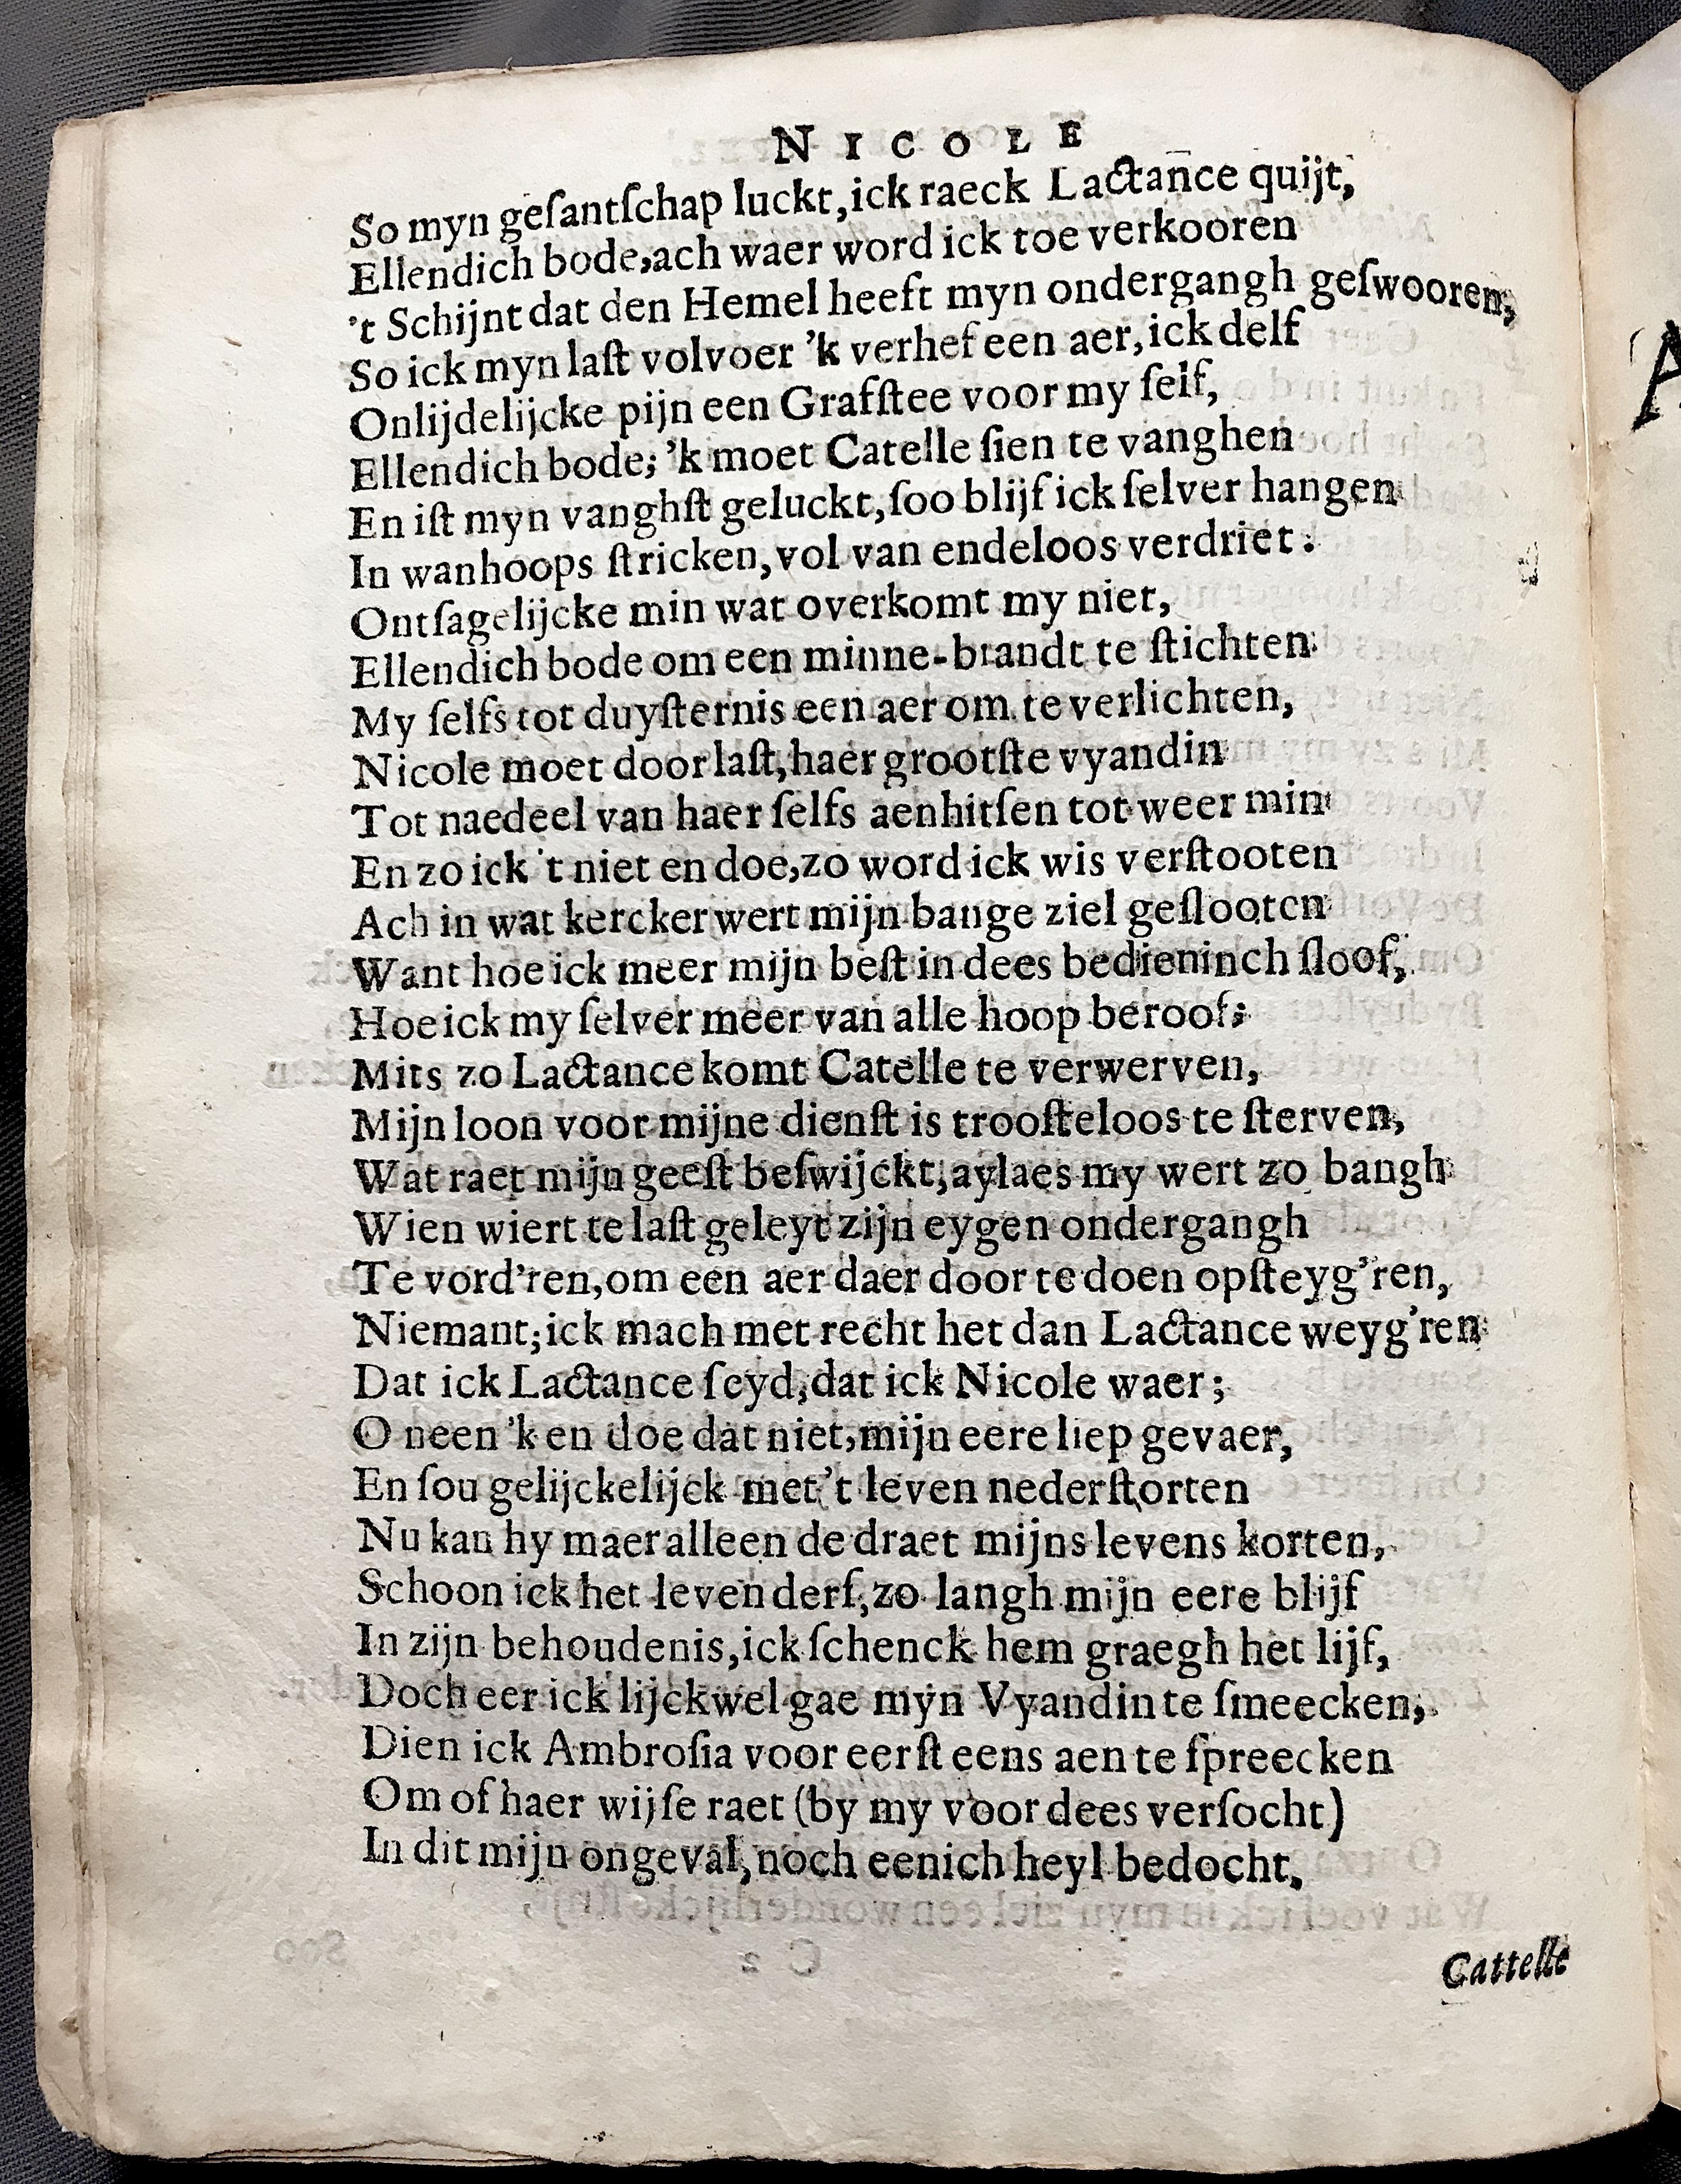 NICOLE
So myn geſantſchap luckt, ick raeck Lactance quijt,
Ellendich bode, ach waer word ick toe verkooren
't Schijnt dat den Hemel heeft myn ondergangh geſwooren,
So ick myn laſt volvoer 'k verhef een aer, ick delf
Onlijdelijcke pijn een Grafſtee voor my ſelf,
Ellendich bode; 'k moet Catelle ſien te vanghen
En iſt myn vanghſt geluckt, ſoo blijf ick ſelver hangen
In wanhoops ſtricken, vol van endeloos verdriet:
Ontſagelijcke min wat overkomt my niet,
Ellendich bode om een minne-brandt te ſtichten
My ſelfs tot duyſternis een aer om te verlichten,
Nicole moet door laſt, haer grootſte vyandin
Tot naedeel van haer ſelfs aenhitſen tot weer min
En zo ick 't niet en doe, zo word ick wis verſtooten
Ach in wat kercker wert mijn bange ziel geſlooten
Want hoe ick meer mijn beſt in dees bedieninch ſloof,
Hoe ick my ſelver meer van alle hoop beroof;
Mits zo Lactance komt Catelle te verwerven,
Mijn loon voor mijne dienſt is trooſteloos te ſterven,
Wat raet mijn geeſt beſwijckt, aylaes my wert zo bangh
Wien wiert te laſt geleyt zijn eygen ondergangh
Te vord'ren, om een aer daer door te doen opſteyg'ren,
Niemant; ick mach met recht het dan Lactance weyg'ren
Dat ick Lactance ſeyd, dat ick Nicole waer;
O neen 'k en doe dat niet, mijn eere liep gevaer,
En ſou gelijckelijck met 't leven nederſtorten
Nu kan hy maer alleen de draet mijns levens korten,
Schoon ick het leven derf, zo langh mijn eere blijf
In zijn behoudenis, ick ſchenck hem graegh het lijf,
Doch eer ick lijckwel gae myn Vyandin te ſmeecken,
Dien ick Ambroſia voor eerſt eens aen te ſpreecken
Om of haer wijſe raet (by my voor dees verſocht)
In dit mijn ongeval, noch eenich heyl bedocht.
Cattelle